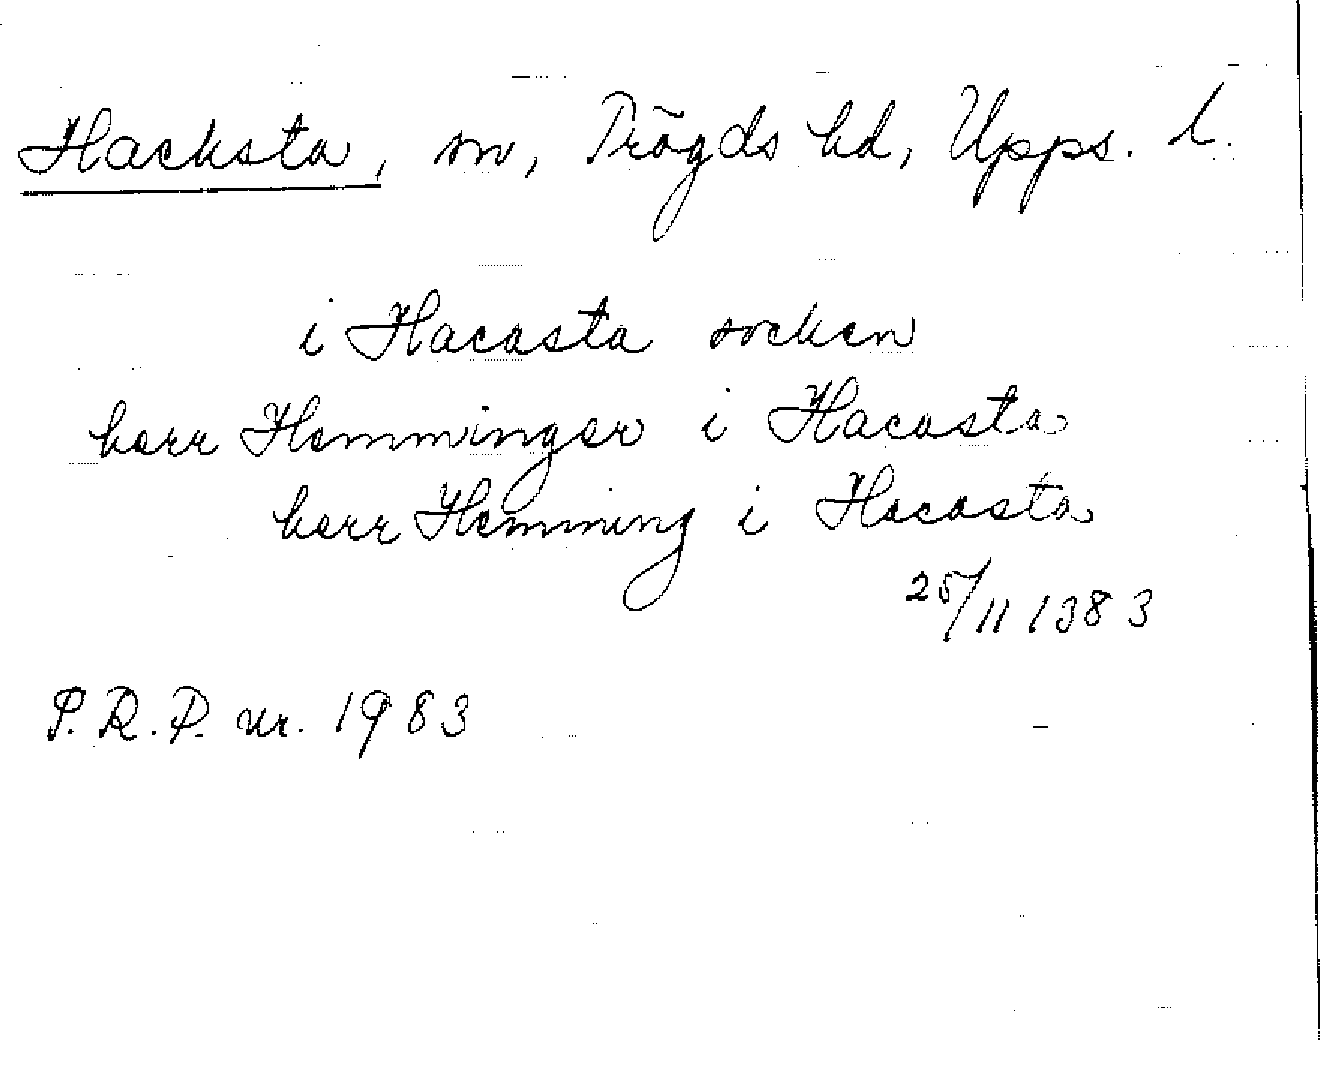 Hacksta, sn, Trögds hd, Upps. l.
i Hacasta socken
herr Hemminger i Hacasta
herr Hemming i Hacasta
25/11 1383
P.R.P. nr. 1983